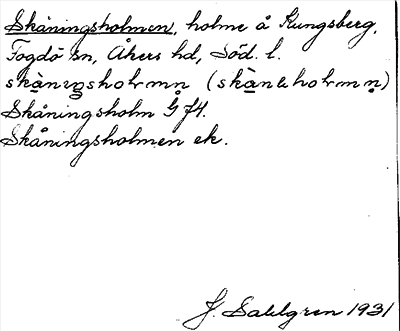 Skåningsholmen, holme å Kungsberg,
Fogdö sn, Åkers hd, Söd. l.
skànıŋshoʟmn̥ (skànɩhoʟmn̥)
Skåningsholm G 74.
Skåningsholmen ek.
J. Sahlgren 1931